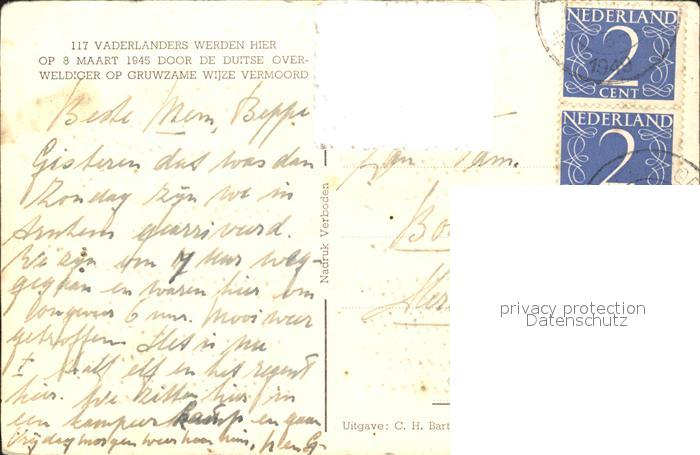 117 VADERLANDERS WERDEN HIER
OP 8 MAART 1945 DOOR DE DUITSE OVER-
WELDIGER OP GRUWZAME WIJZE VERMOORD
Beste Mem, Beppe
Gisteren dat was dan
Zondag zijn we in
Arnhem gearriveerd.
We zijn om 7 uur weg-
gegaan en waren hier om
ongeveer 6 uur. Mooi weer
getroffen. Het is nu
half elf en het regent
hier. We zitten hier in
een kampeer kamp en gaan
Vrijdagmorgen weer naar huis,
Nadruk Verboden
Fam.
Uitgave: C. H. Bart
NEDERLAND
2
CENT
NEDERLAND
2
1949
privacy protection
Datenschutz